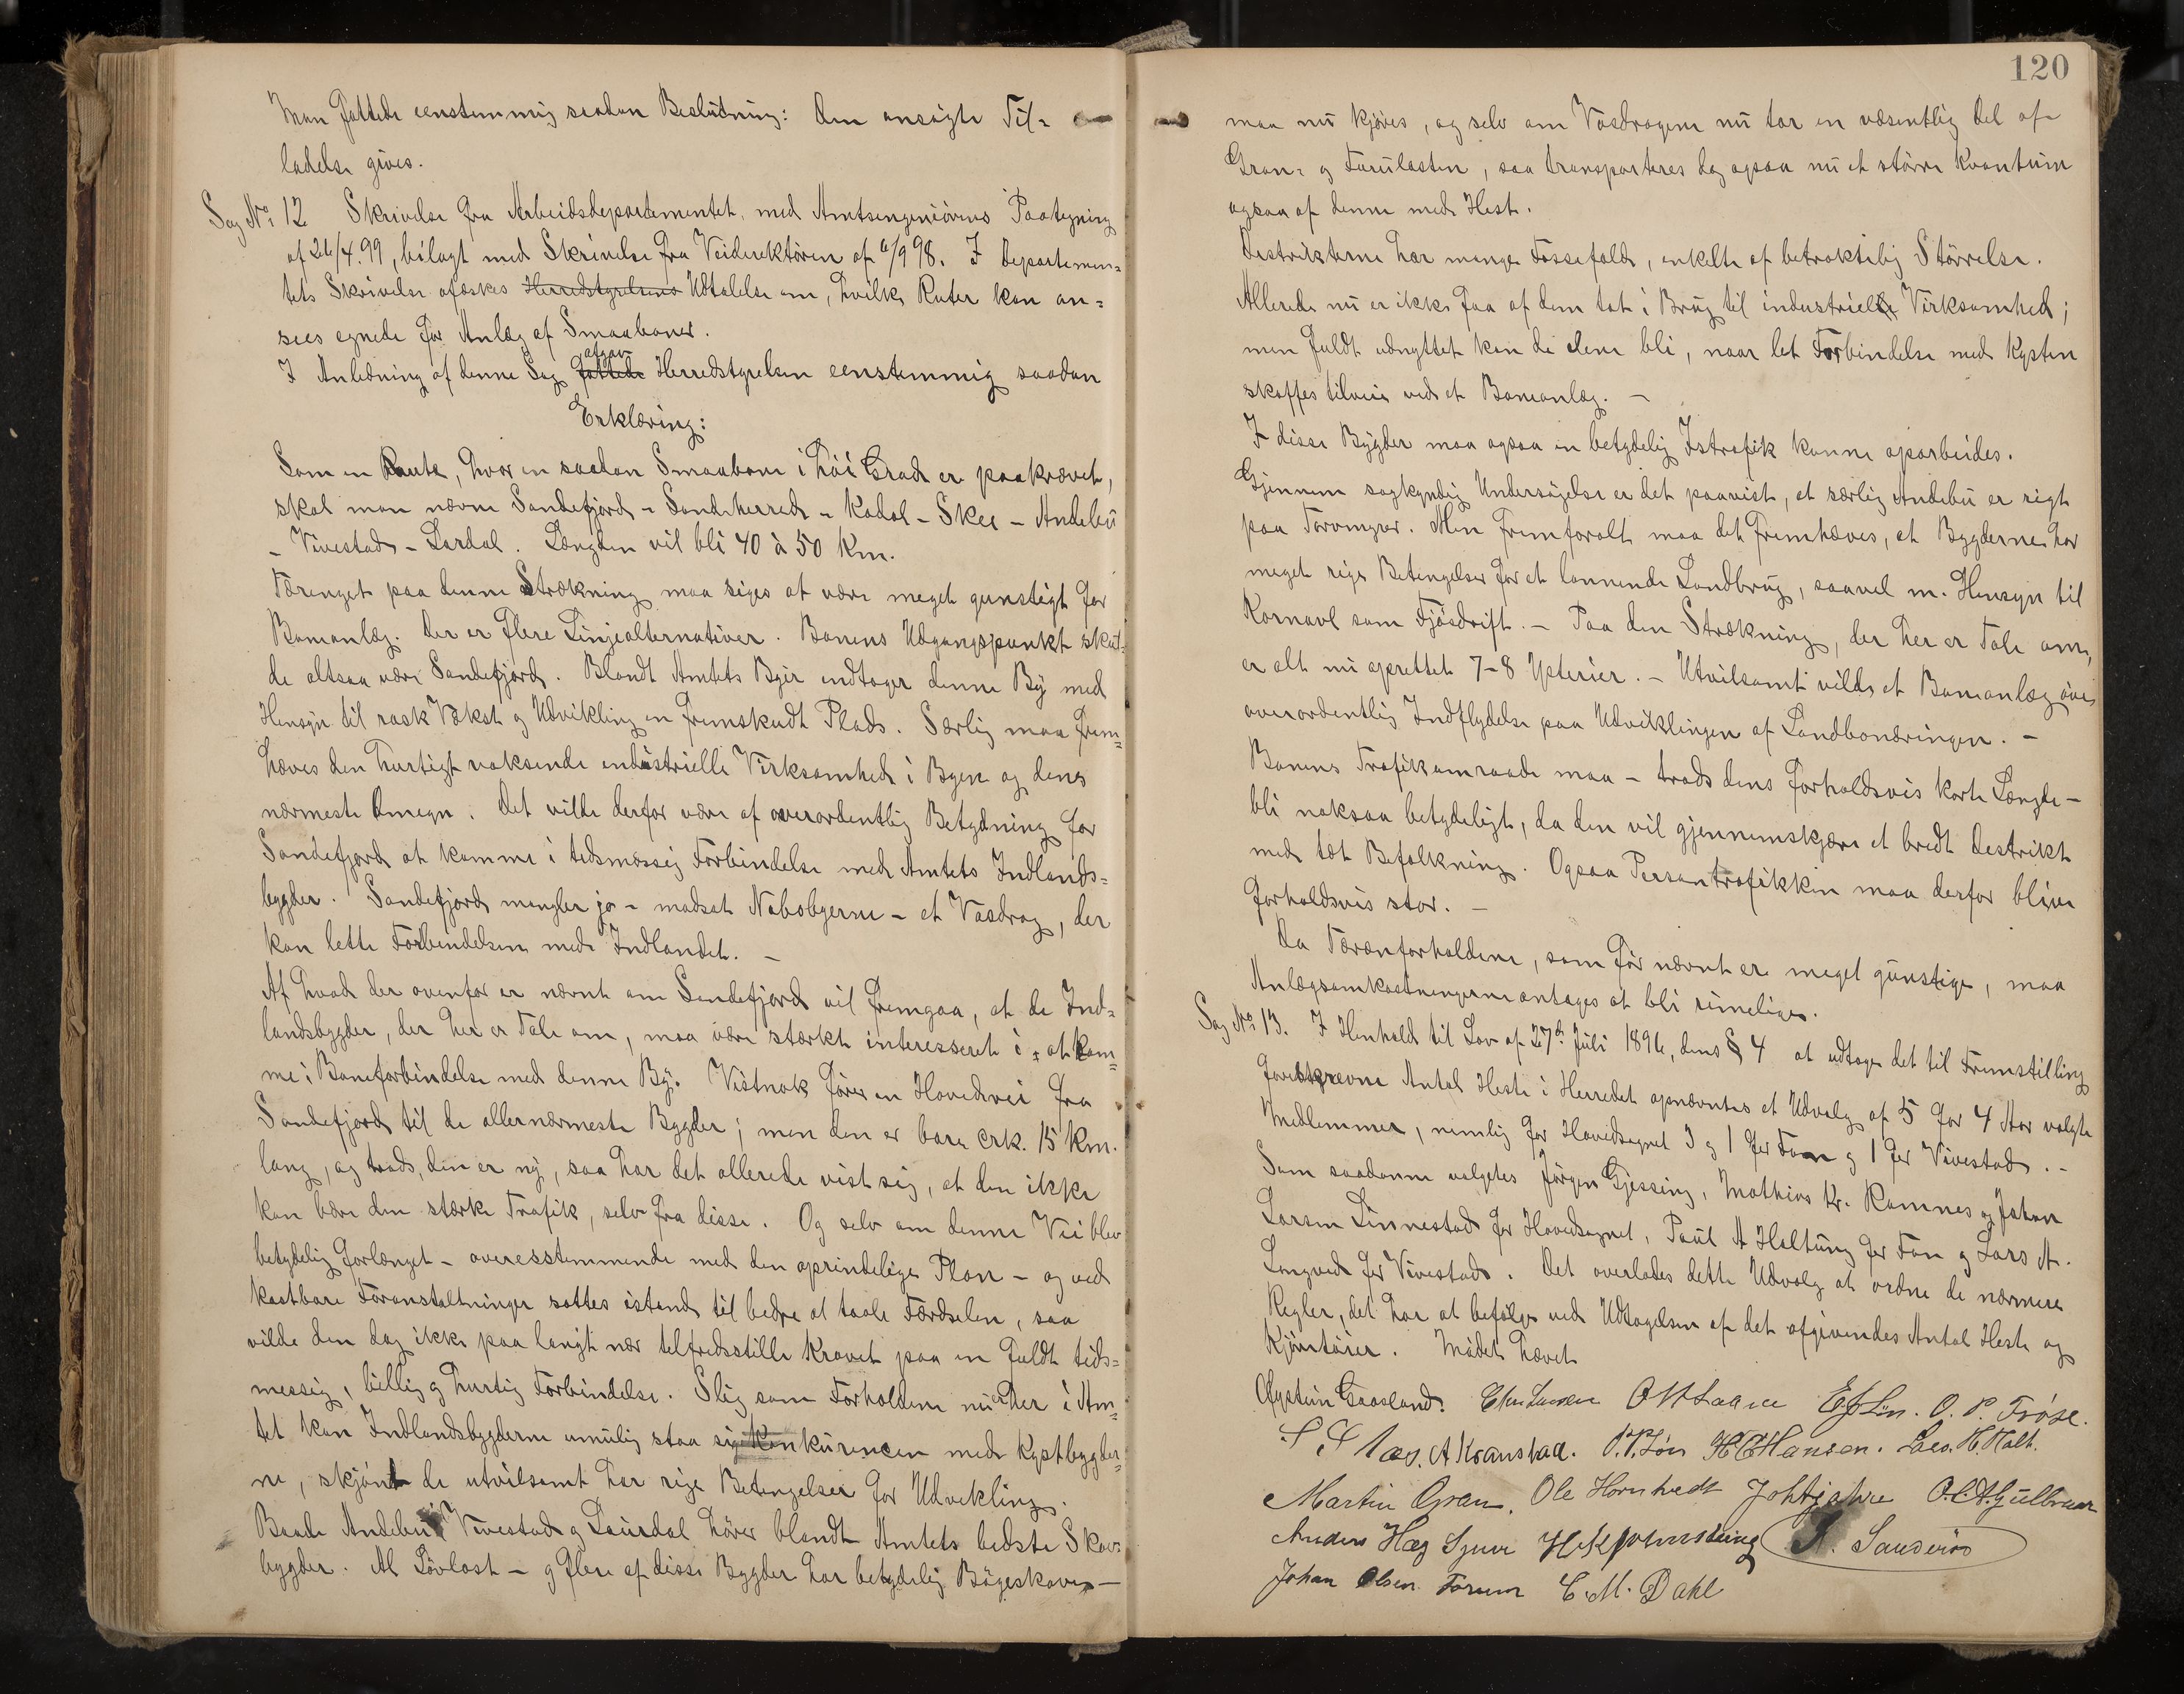 Man fattede eenstemmig saadan Beslutning: Den ansøgte Til-
ladelse gives.
Sag No. 12 Skrivelse fra Arbeidsdepartementet, med Amtsingeniörens Paategning
af 26/4. 99, bilagt med Skrivelse fra Veidirektören af 6/9 98. I Departemen-
tets Skrivelse afæskes Herredstyrelsens Udtalelse om, hvilke Ruter kan an-
sees egnede for Anlæg af Smaabaner.
afgav
I Anledning af denne Sag fattede Herredstyrelsen eenstemmig saadan
Erklæring:
Som en Raute, hvor en saadan Smaabane i höi Grad er paakrævet,
skal man nævne Sandefjord - Sandeherred - Kodal - Skee - Andebu
- Vivestad - Lardal. Længden vil bli 40 à 50 Km.
Tærenget paa denne Strækning maa siges at være meget gunstigt for
Baneanlæg. Der er flere Linjealternativer. Banens Udgangspunkt skul-
de altsaa være Sandefjord. Blandt Amtets Byer indtager denne By med
Hensyn til rask Vækst og Udvikling en fremskudt Plads. Særlig maa frem-
hæves den hurtigt voksende industrielle Virksomhed i Byen og dens
nærmeste Omegn. Det vilde derfor være af overordentlig Betydning for
Sandefjord at komme i tidsmæssig Forbindelse med Amtets Indlands-
bygder. Sandefjord mangler jo - modsat Nabobyerne - et Vasdrag, der
kan lette Forbindelsen med Indlandet. -
Af hvad der ovenfor er nævnt om Sandefjord vil fremgaa, at de Ind-
landsbygder, der her er Tale om, maa være stærkt interesseret i at kom-
me i Baneforbindelse med denne By. Vistnok förer en Hovedvei fra
Sandefjord til de allernærmeste Bygder; men den er bare crk. 15 Km.
lang, og trods, den er ny, saa har det allerede vist sig, at den ikke
kan bære den stærke Trafik, selv fra disse. Og selv om denne Vei blev
betydelig forlænget - overesstemmende med den oprindelige Plan - og ved
kostbare Foranstaltninger sattes istand til bedre at taale Færdselen, saa
vilde den dog ikke paa langt nær telfredsstille Kravet paa en fuldt tids-
messig, billig og hurtig Forbindelse. Slig som Forholdene nu er her i Am-
tet kan Indlandsbygderne umulig staa sig i Konkurencen med Kystbygder-
ne, skjönt de utvilsomt har rige Betengelser for Udvekling.
Baade Andebu, Vivestad og Laurdal hörer blandt Amtets bedste Skov-
bygder. Al Lövlast - og flere af disse Bygder har betydelig Bögeskove -
120
maa nu kjöres, og selv om Vasdragene nu tar en væsentlig Del af
Gran- og Furulasten, saa transporteres dog ogsaa nu et större Kvantum
ogsaa af denne med Hest.
Destrikterne har mange Fossefald, enkelte af betraktelig Störrelse.
Allerede nu er ikke faa af dem tat i Brug til industriel Virksomhed;
men fuldt udnyttet kan de alene bli, naar let Forbindelse med Kysten
skaffes tilveie ved et Baneanlæg. -
I disse Bygder maa ogsaa en betydelig Istrafik kunne oparbeides.
Gjennem sagkyndig Undersögelse er det paavist, at særlig Andebu er rigt
paa Torvmyrer. Men fremforalt maa det fremhæves, at Bygderne har
meget rige Betengelser for et lønnende Landbrug, saavel m. Hensyn til
Kornavl som Fjösdrift. - Paa den Strækning, der her er Tale om,
er alt nu oprettet 7-8 Ysterier. - Utvilsomt vilde et Baneanlæg öve
overordentlig Indflydelse paa Udviklingen af Landbonæringen. -
Banens Trafikomraade maa - trods dens forholdsvis korte Længde -
bli noksaa betydeligt, da den vil gjennemskjære et bredt Destrikt
med tæt Befolkning. Ogsaa Persontrafikken maa derfor blive
forholdsvis stor. -
Da Tærænforholdene, som för nævnt er meget gunstige, maa
Anlægsomkostningerne antages at bli rimelige.
Sag No. 13. I Henhold til Lov af 27de Juli 1896, dens § 4 at udtage det til Fremstilling
foreskrevne Antal Heste i Herredet opnævntes et Udvalg af 5 for 4 Aar valgte
Medlemmer, nemlig for Hovedsognet 3 og 1 for Fon og 1 for Vivestad. -
Som saadanne valgtes Jörgen Gjessing, Mathias Kr. Ramnes og Johan
Larsen Linnestad for Hovedsognet, Paul A Holtung for Fon og Lars A.
Langved for Vivestad. Det overlodes dette Udvalg at ordne de nærmere
Regler, det har at befölge ved Udtagelsen af det afgivendes Antal Heste og
Kjöretöier. Mödet hævet
Øystein Graasland. O. P. Fröse.
A Kranstad. H C Hansen. Lars. H. Holt.
Martin Gran. Ole Hornhedt
Anders Hag S. Sanderöd
Johan Olsen Forum C. M. Dahl